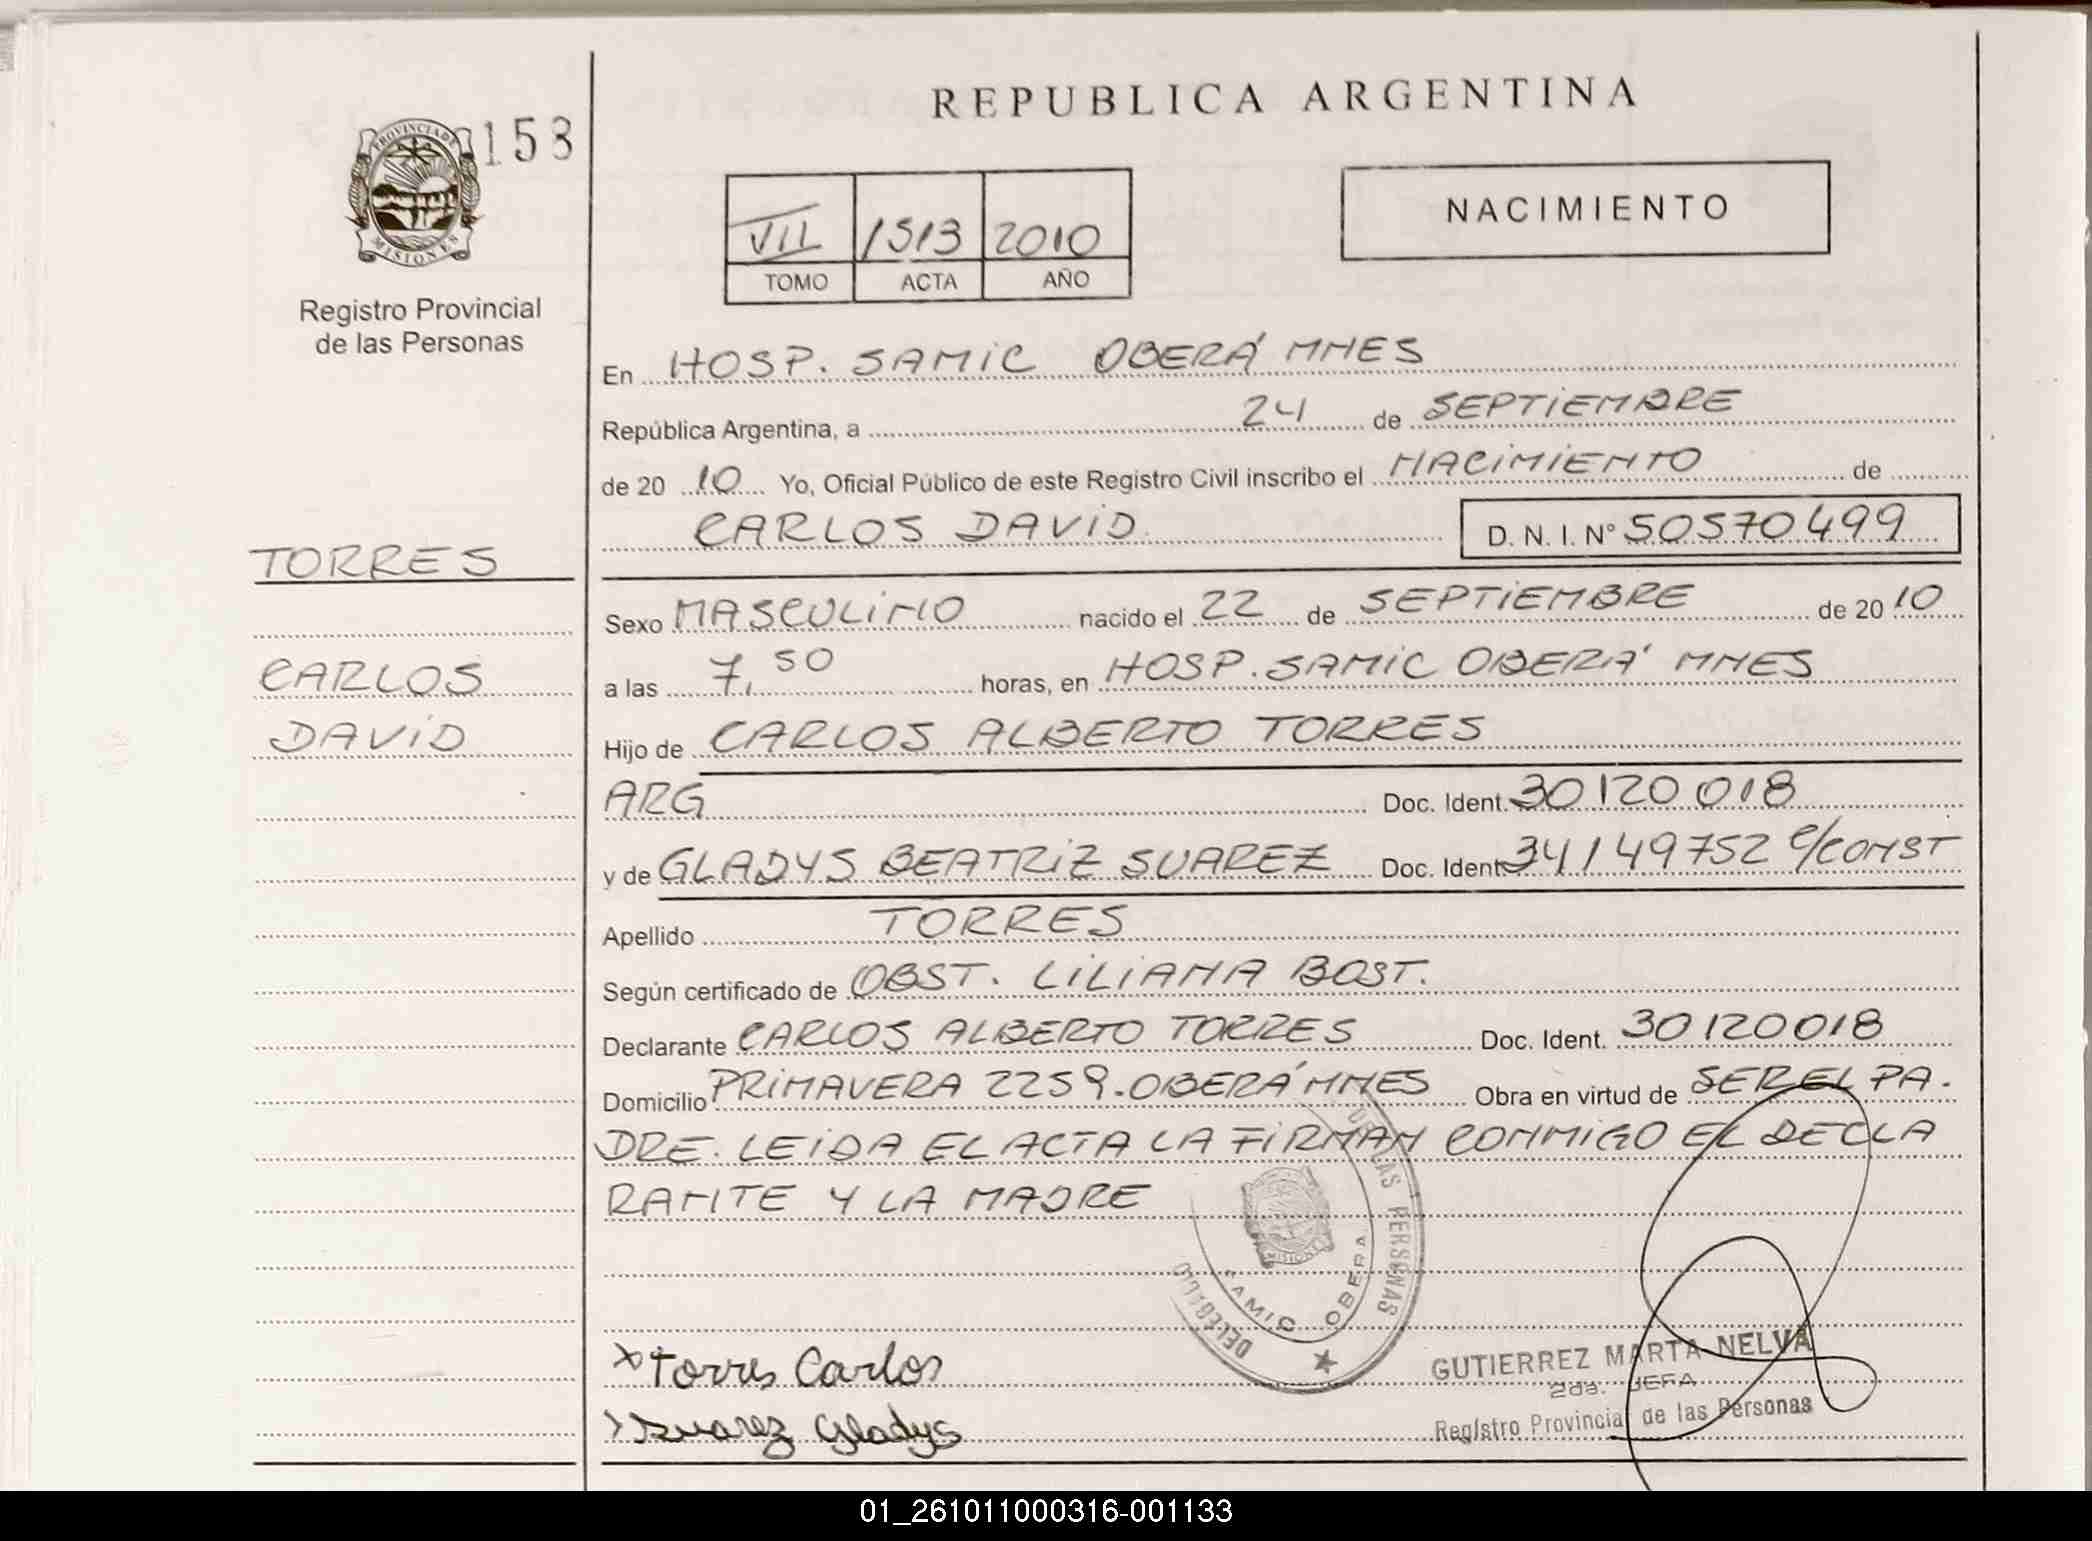 153
PROVINCIA DE
MISIONES
Registro Provincial
de las Personas
TORRES
CARLOS
DAVID
REPUBLICA ARGENTINA
VII 1513 2010
TOMO ACTA AÑO
NACIMIENTO
En HOSP. SAMIC OBERÁ MNES
República Argentina, a 24 de SEPTIEMBRE
de 20 10 Yo, Oficial Público de este Registro Civil inscribo el NACIMIENTO de
CARLOS DAVID D. N. I. N° 50570499
Sexo MASCULINO nacido el 22 de SEPTIEMBRE de 20 10
a las 7,50 horas, en HOSP. SAMIC OBERA' MNES
Hijo de CARLOS ALBERTO TORRES
ARG Doc. Ident. 30120018
y de GLADYS BEATRIZ SUAREZ Doc. Ident. 34149752 C/CONST
Apellido TORRES
Según certificado de OBST. LILIANA BOST.
Declarante CARLOS ALBERTO TORRES Doc. Ident. 30120018
Domicilio PRIMAVERA 2259. OBERÁ MNES Obra en virtud de SER EL PA.
DRE. LEIDA EL ACTA LA FIRMAN CONMIGO EL DECLA
RANTE Y LA MADRE
LAS PERSONAS
MISIONES
SAMIC OBERA
x Torres Carlos
Suarez Gladys
GUTIERREZ MARTA NELVA
2da. JEFA
Registro Provincial de las Personas
01_261011000316-001133